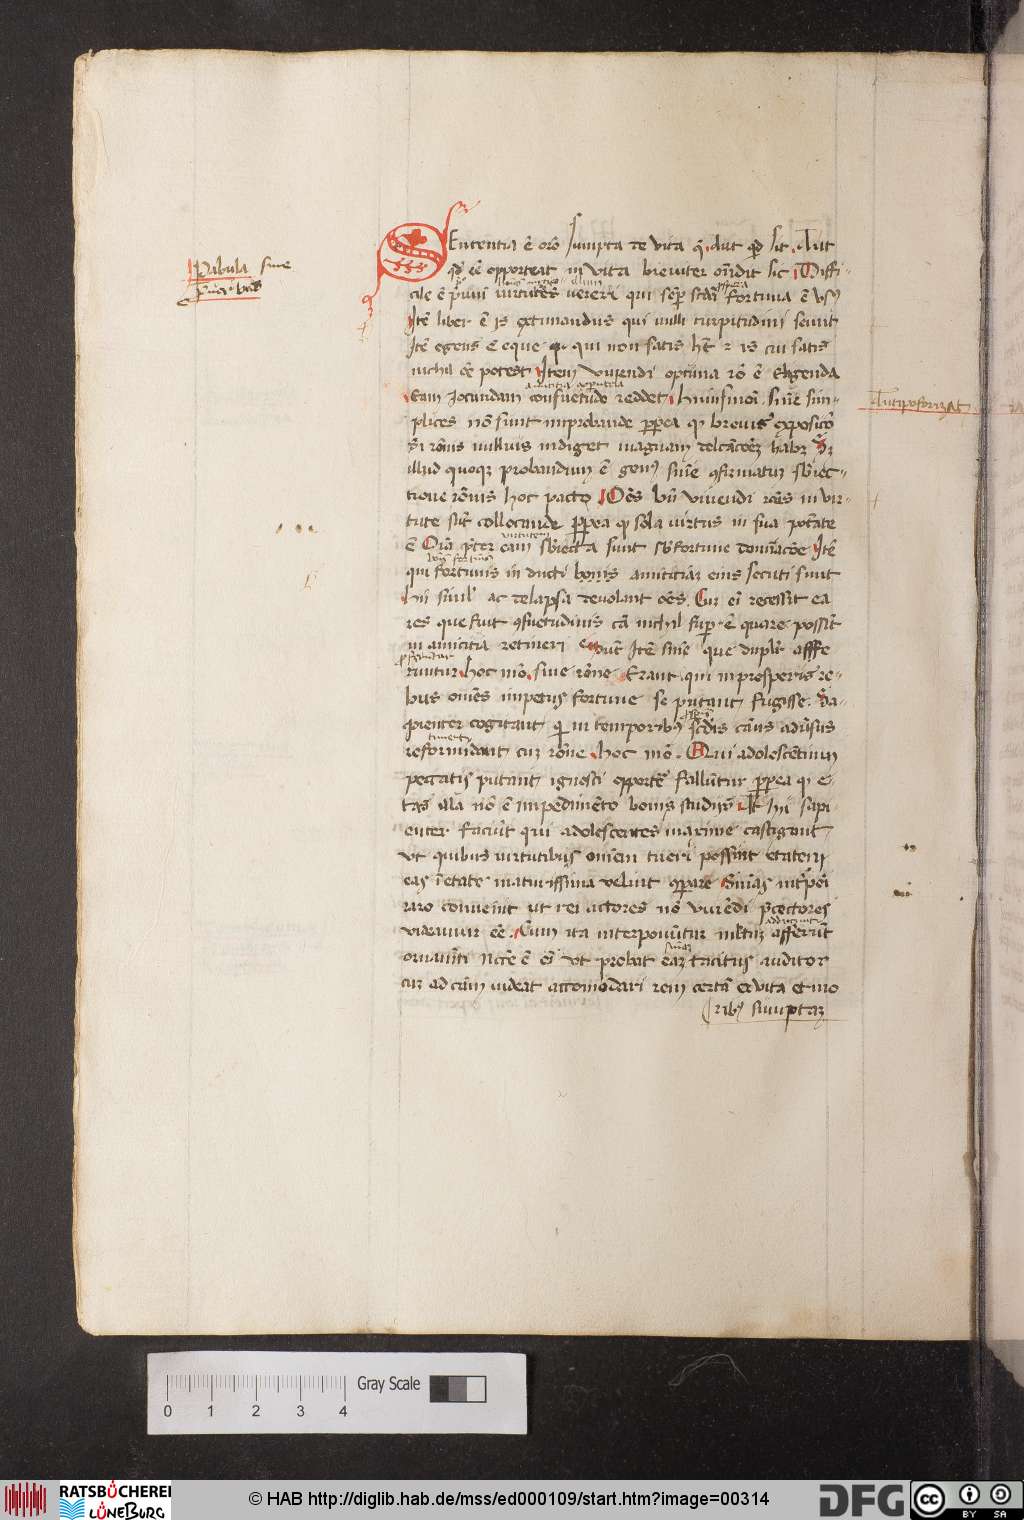 Sentencia ē orō sumpta de vita q̄ aut qͥd sit Aut
Pabula siue
quͥd eē opporteat in vita breuiter ondit sic Diffi-
cile ē pͥmum virtutes vereri qui semp scdͣ fortuna ē vsꝰ
Itē liber ē is extimandus qui nulli turpitudini seruit
Itē egens ē eque qui non satis hꝫ ⁊ is cui satis
nichil eē potest Item viuendi optima rō ē eligenda
Eam Jocundam consuetudo reddet huiusmoi Sniē sim-
plices nō sunt improbande ꝓpͥea qͥ breuis expositō
si rōnis nullius indiget magnam delcācōeꝫ habꝫ Sꝫ
illud quoqꝫ probandum ē genꝰ sniē ꝯfirmatur sbiec-
tione rōnis hoc pacto Oēs bn̄ viuendi rōes in vir-
tute sūt collocande ꝓpͥea qͥ sola virtus in sua ptāte
ē Oīa pͥter eam sbiecta sunt sb fortune domīacōe Itē
qui fortunis in ducti bonis amicitiā eius secuti sunt
hii simul ac delapsa deuolant oēs Cur eī recessit ea
res que fuit ꝯsuetudinis cā nichil supͥ ē quare possit
in amicitia retineri Sūt Itē sniē que duplr affe
runtur hoc mō siue rōne Erant qui in prosperis re-
bus omēs impetus fortune se putant fugisse Sa-
pienter cogitant qui in temporibus scdis casus adūsus
reformidant cuꝫ rōne hoc mō Qui adolescētium
peccatis putant ignosci opportē falluntur ꝓpͥea qͥ e-
tas illa nō ē impedimēto bonis studiis At hi sapi-
enter faciūt qui adolescentes maxime castigant
vt quibus virtutibus omēm tueri possint etatem
eas ī etate maturissima velint ꝯparare Snīas intͥpōi
raro conuenit ut rei actores nō viuēdi pͥceptores
videamur eē Cum ita interponūtur mltꝫ afferūt
ornamēti Nccē ē eī vt probat eaꝫ tacitus auditor
cuꝫ ad cām videat accomodari rem certā ex vita et mo
ribꝰ sumptaꝫ
0 1 2 3 4
Gray Scale
RATSBÜCHEREI LÜNEBURG
© HAB http://diglib.hab.de/mss/ed000109/start.htm?image=00314
DFG
cc BY SA